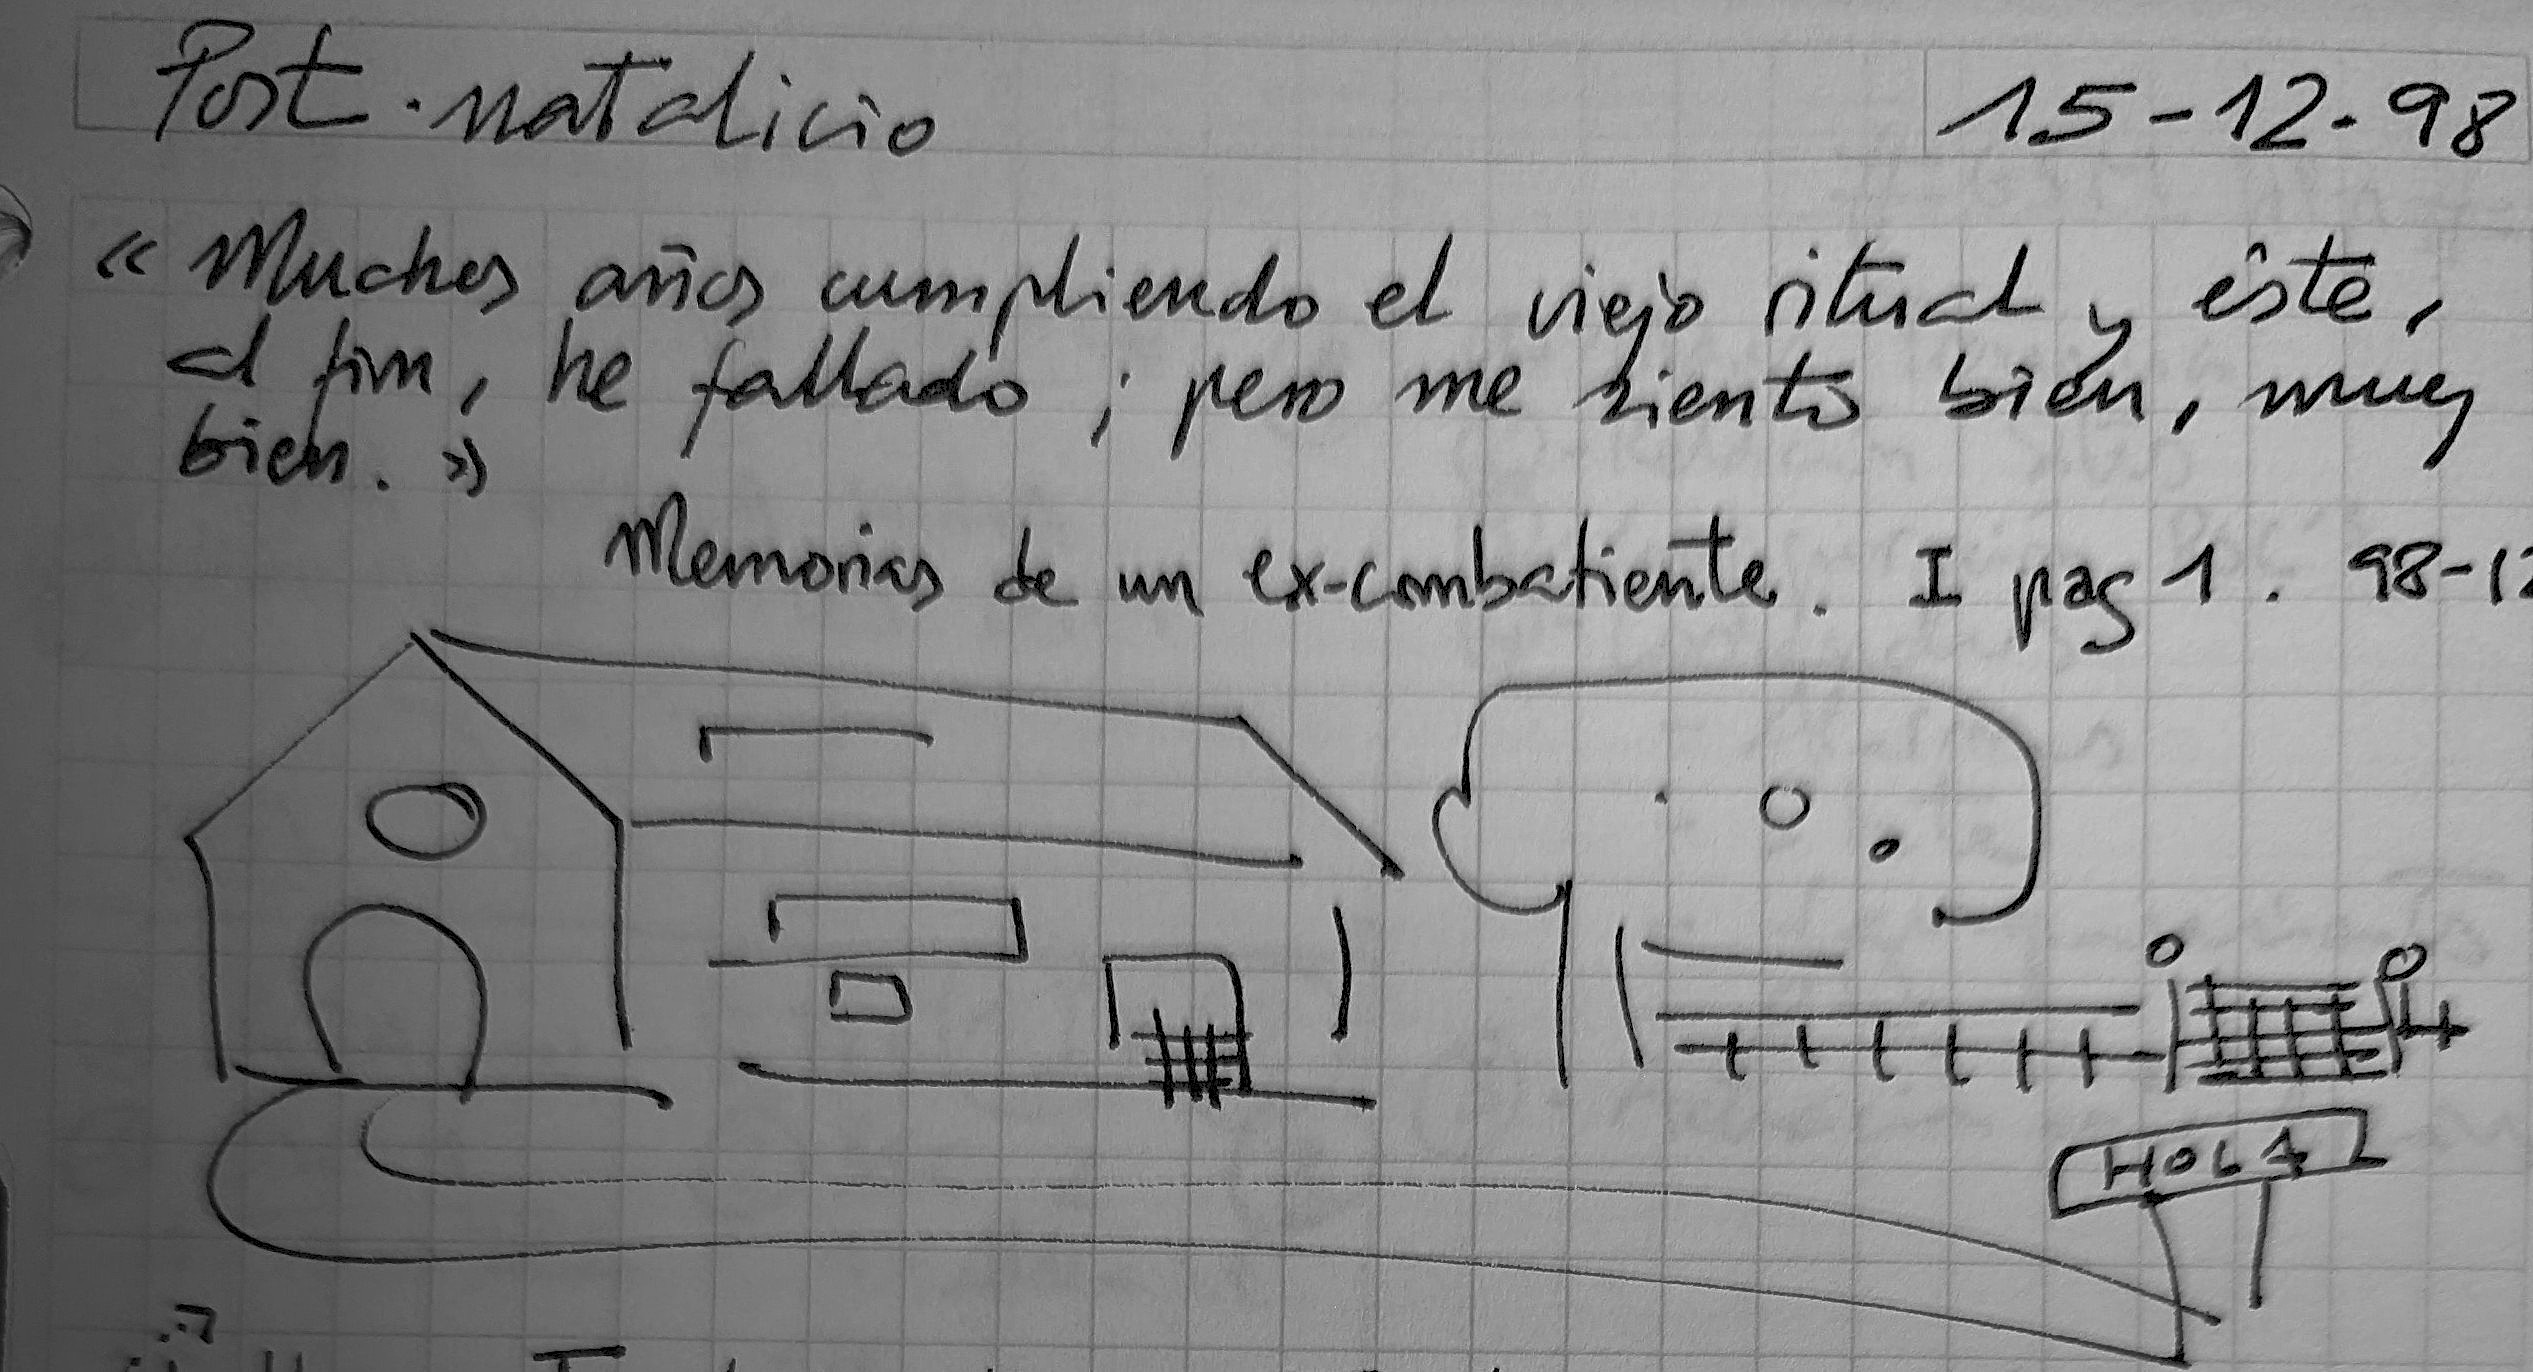 Post-natalicio
15-12-98
« Muchos años cumpliendo el viejo ritual y éste,
al fin, he fallado ; pero me siento bien, muy
bien. »
Memorias de un ex-combatiente. I pag 1. 98-12
HOLA